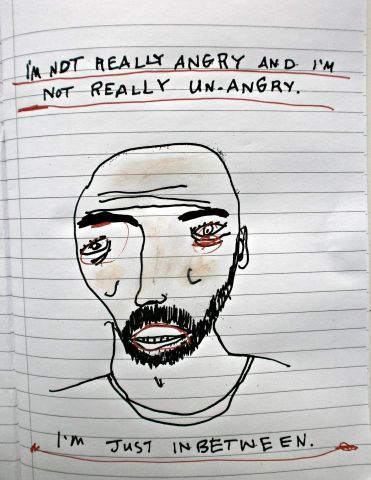 I'M NOT REALLY ANGRY AND I'M
NOT REALLY UN-ANGRY.
I'M JUST INBETWEEN.